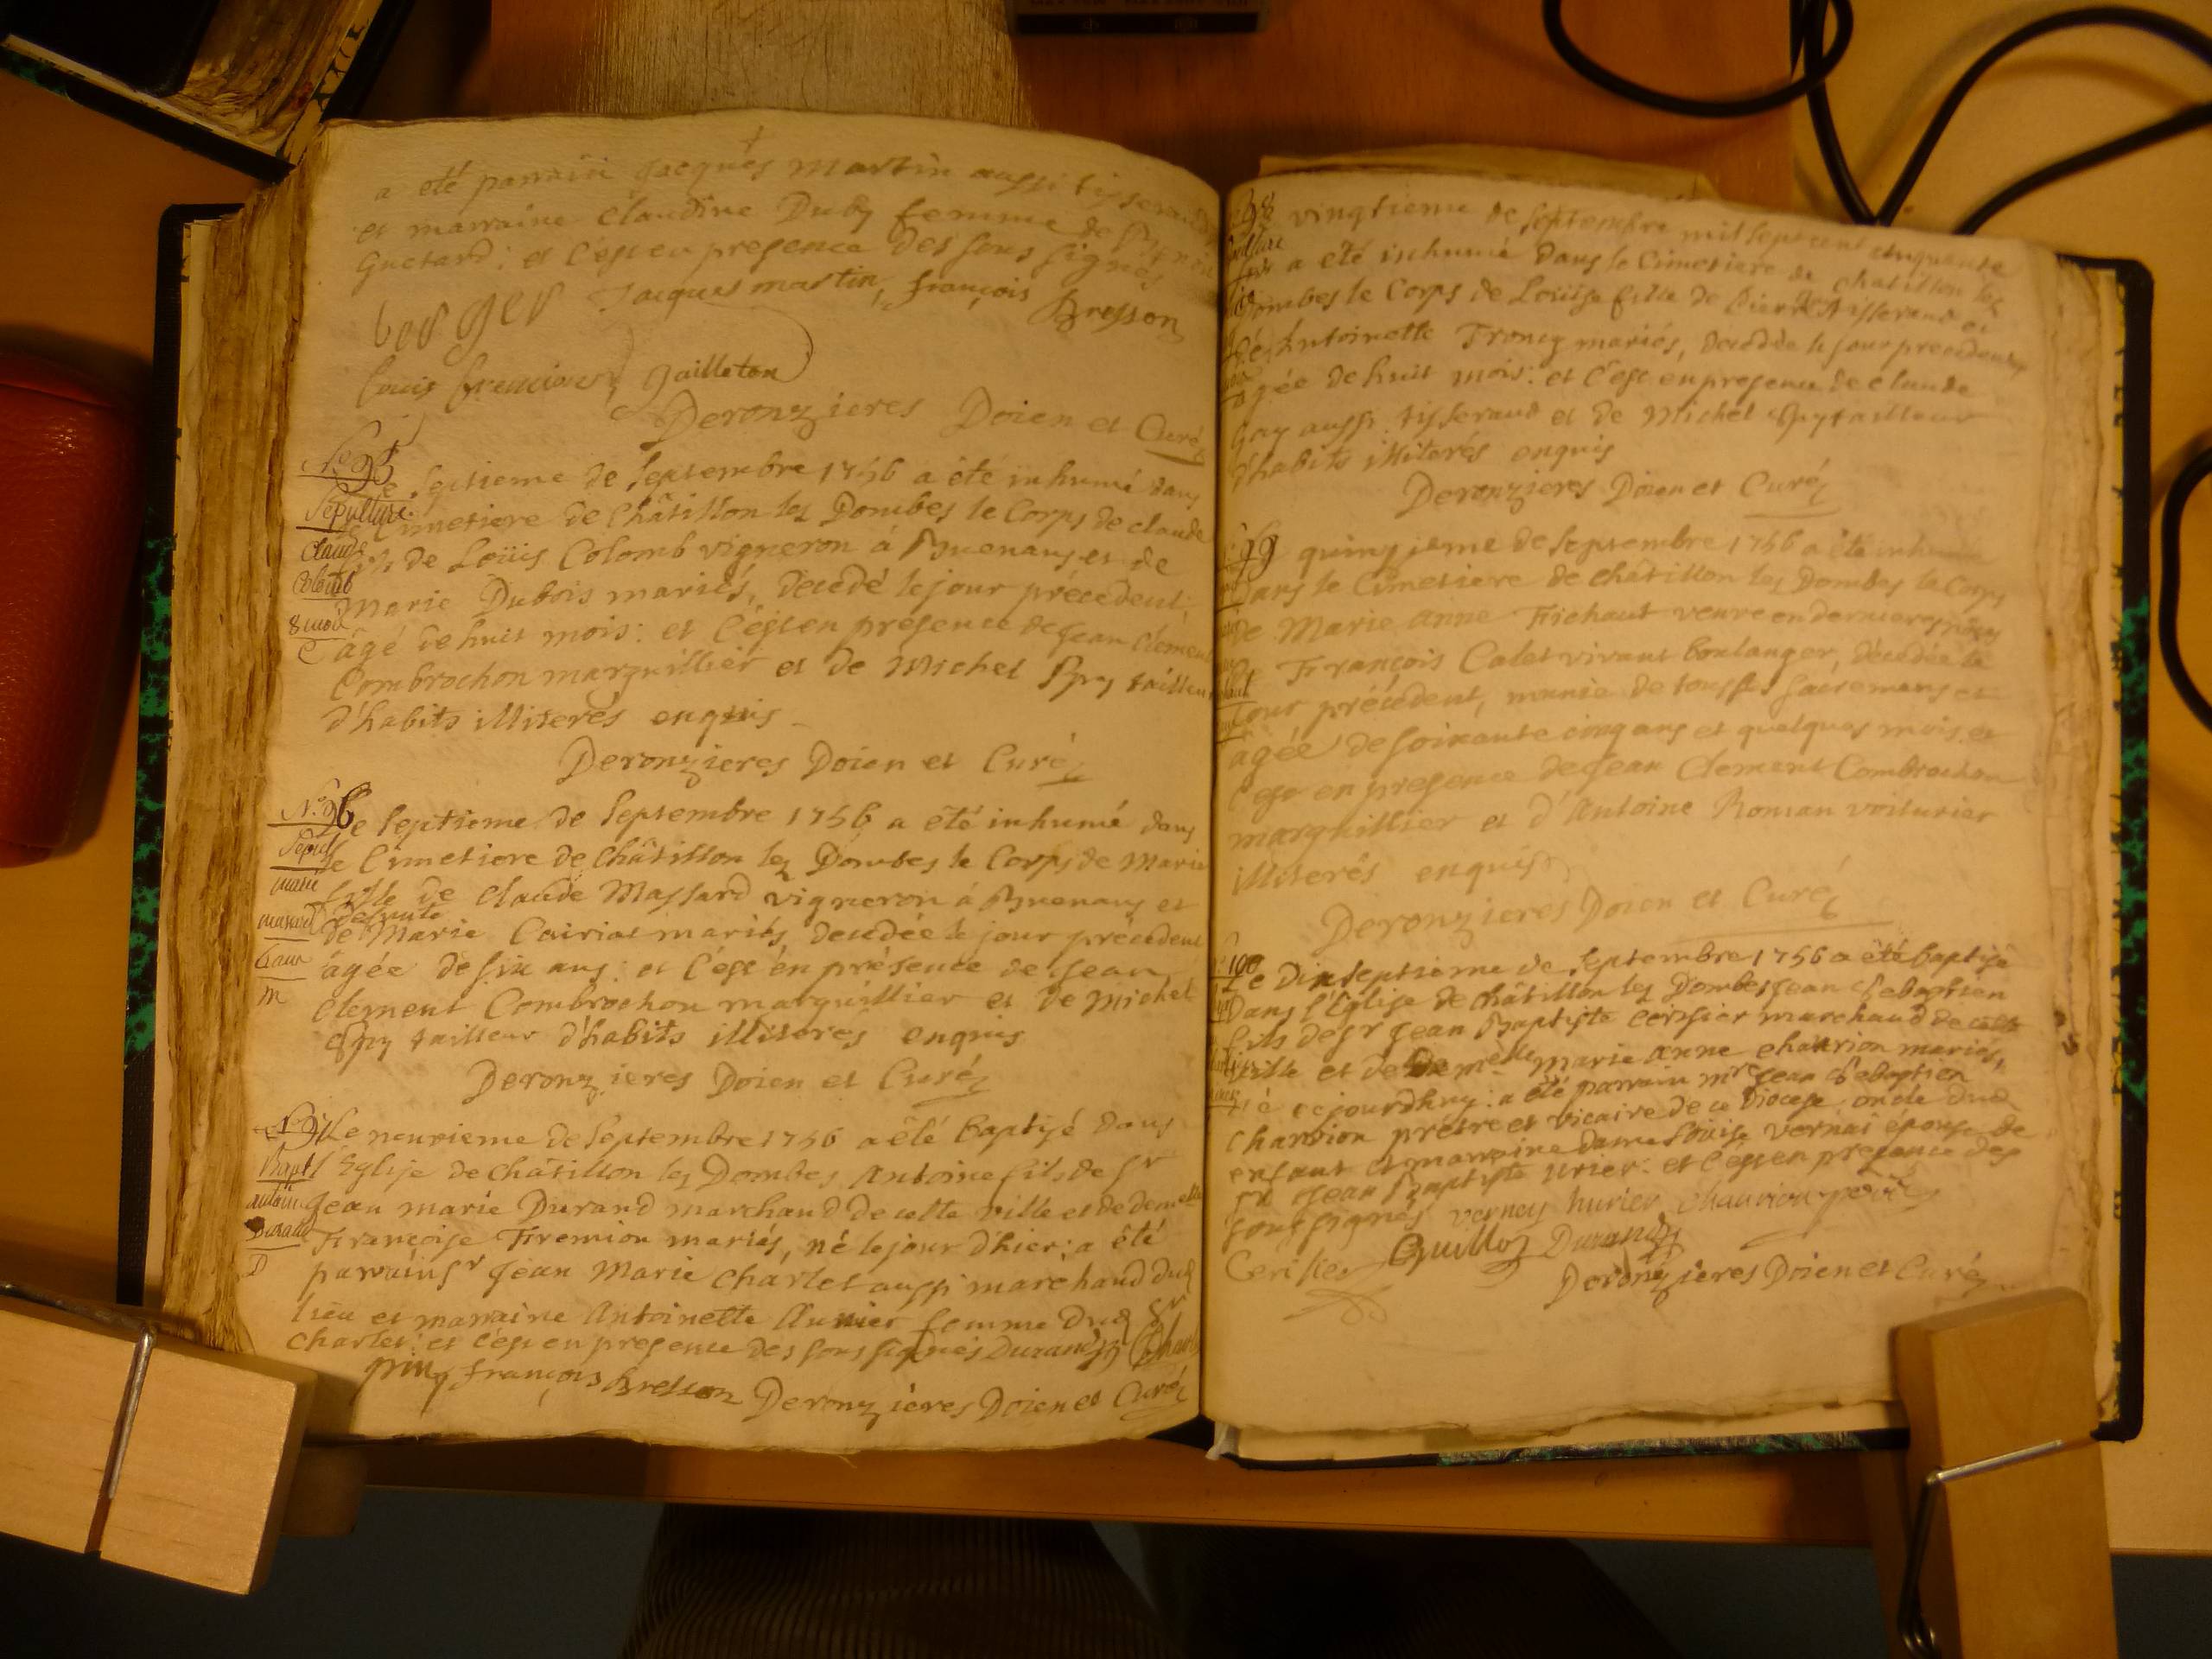 a été parrain Jacques Martin aussi tisserand
et marraine Claudine Duby femme de
Guetard: et c'est en presence des sous signés
berger Jacques martin, françois Bresson
Louis Jailleton
Deronzieres Doien et Curé
N.° 95
Sepulture
Claude
Colomb
8 mois
Le septieme de septembre 1756 a été inhumé dans
le Cimetiere de Châtillon lez Dombes le Corps de claude
fils de Loüis Colomb vigneron à Buenans et de
Marie Dubois mariés, décédé le jour précédent,
âgé de huit mois: et c'est en présence de Jean Clement
Combrochon marguillier et de Michel Spy tailleur
d'habits illiterés enquis
Deronzieres Doien et Curé
N.° 96
Sepul
marie
massard
6 ans
m
Le septieme de septembre 1756 a été inhumé dans
le Cimetiere de Châtillon lez Dombes le Corps de Marie
fille de Claude Massard vigneron à Buenans et
defunte
de Marie Cairiat mariés, decédée le jour précédent
âgée de six ans: et c'est en présence de Jean
Clement Combrochon marguillier et de Michel
Spy tailleur d'habits illiterés enquis
Deronzieres Doien et Curé
N.° 97
Bapt
antoine
Durand
D
Le neuvieme de septembre 1756 a été baptisé dans
l'Eglise de Châtillon lez Dombes Antoine fils de Sr
Jean marie Durand marchand de cette ville et de demelle
Françoise Fremion mariés, né le jour d'hier: a été
parrain sr Jean Marie Charlet aussi marchand dud
lieu et marraine Antoinette femme dud Sr
Charlet: et c'est en presence des sous signés Durand
françois Bresson Deronzières Doien et Curé
98
vingtieme de septembre mil sept cent cinquante
a été inhumé dans le Cimetiere de chatillon lez
Dombes le Corps de Loüise fille de Pierre tisserand et
de Antoinette Troncy mariés, decédée le jour precedent,
agée de huit mois: et c'est en presence de claude
Gay aussi tisserand et de Michel Spy tailleur
d'habits illiterés enquis
Deronzieres Doien et Curé
99
quinzieme de septembre 1756 a été inhumé
dans le Cimetiere de châtillon lez Dombes le Corps
de Marie anne Fichaut veuve en dernieres nôces
de François Calet vivant boulanger, décédée le
jour précédent, munie de tous ses sacremens et
agée de soixante cinq ans et quelques mois: et
c'est en presence de Jean Clement Combrochon
marguillier et d'Antoine Roman voiturier
illiterés enquis
Deronzieres Doien et Curé
100
Le dix septieme de septembre 1756 a été baptisé
dans l'Eglise de châtillon lez Dombes Jean Sebastien
fils de sr Jean Baptiste Cerisier marchand de cette
ville et de Demelle marie anne chavrion mariés,
né ce jourdhuy: a été parrain mre Jean Sebastien
chavrion prêtre et vicaire de ce Diocese oncle dud
enfant et marraine dame Loüise Vernai épouse de
sr Jean Baptiste Urier: et c'est en presence des
soussignés verney hurier chavrion
Cerisier Guilloz Durand
Deronzieres Doien et Curé